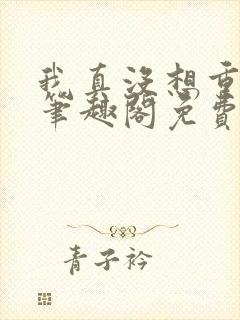 我真没想重
笔趣阁免费
青子衿